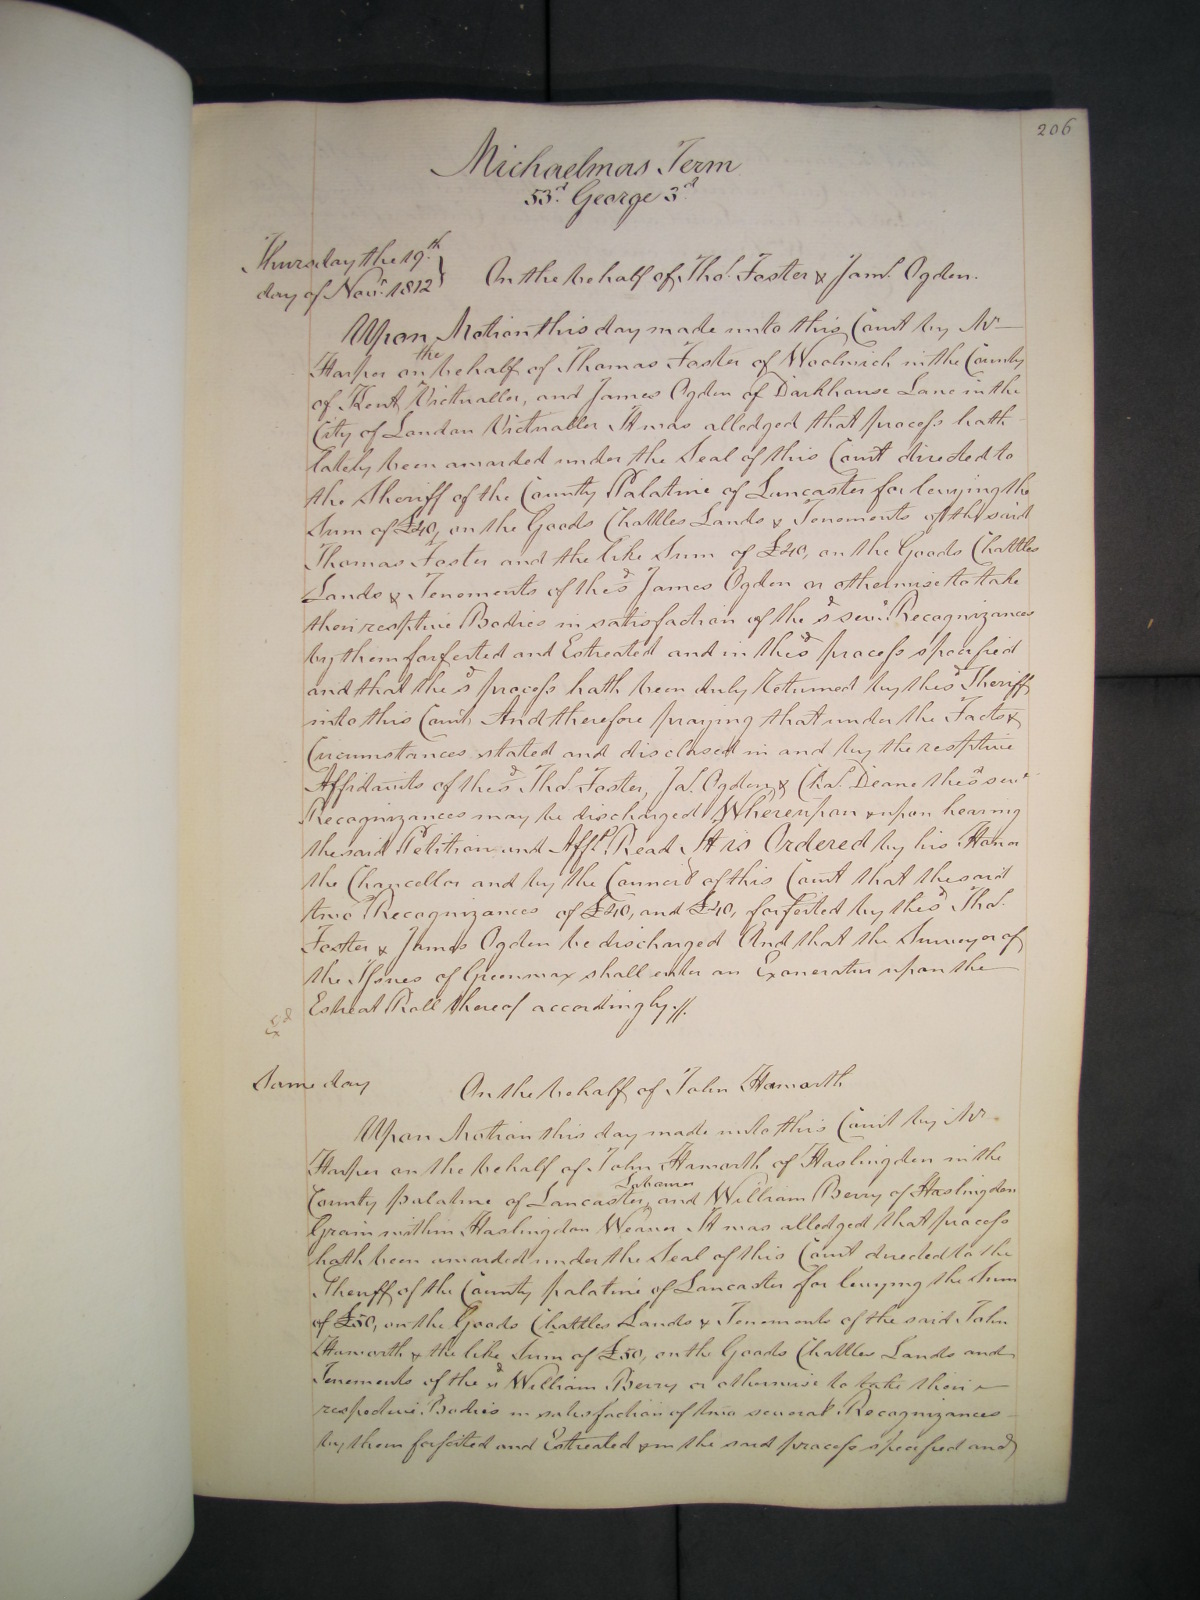 206
Michaelmas Term
53d. George 3d.
Thursday the 19th.
day of Novr. 1812
On the behalf of Thos. Foster & Jams. Ogden.
Upon Motion this day made unto this Court by Mr
Harper on the behalf of Thomas Foster of Woolwich in the County
of Kent Victualler, and James Ogden of Darkhouse Lane in the
City of London Victualler It was alledged that process hath
lately been awarded under the Seal of this Court directed to
the Sheriff of the County Palatine of Lancaster for levying the
Sum of £40, on the Goods Chattles Lands & Tenements of the said
Thomas Foster and the like Sum of £40, on the Goods Chattles
Lands & Tenements of the sd James Ogden or otherwise to take
their resptive Bodies in satisfaction of the sd sevl. Recognizances
by them forfeited and Estreated and in the sd process specified
and that the sd process hath been duly Returned by the sd Sheriff
into this Court And therefore praying that under the Facts &
Circumstances stated and disclosed in and by the resptive
Affidavits of the sd Thos. Foster, Jas. Ogden & Chas. Deane the sd sevl
Recognizances may be discharged Whereupon & upon hearing
the said Petition and Affts. Read It is Ordered by his Honor
the Chancellor and by the Council of this Court that the said
two Recognizances of £40, and £40, forfeited by the sd Thos.
Foster & James Ogden be discharged And that the Surveyor of
the Issues of Greenwax shall enter an Exoneratur upon the
Estreat Roll thereof accordingly.//.
Exd
Same day
On the behalf of John Haworth
Upon Motion this day made unto this Court by Mr
Harper on the behalf of John Haworth of Haslingden in the
County palatine of Lancaster, and William Berry of Haslingden
Grain within Haslingden Weaver It was alledged that process
hath been awarded under the Seal of this Court directed to the
Sheriff of the County palatine of Lancaster for levying the Sum
of £50, on the Goods Chattles Lands & Tenements of the said John
Haworth & the like Sum of £50, on the Goods Chattles Lands and
Tenements of the sd William Berry or otherwise to take their
respective Bodies in satisfaction of two several Recognizances
by them forfeited and Estreated & in the said process specified and